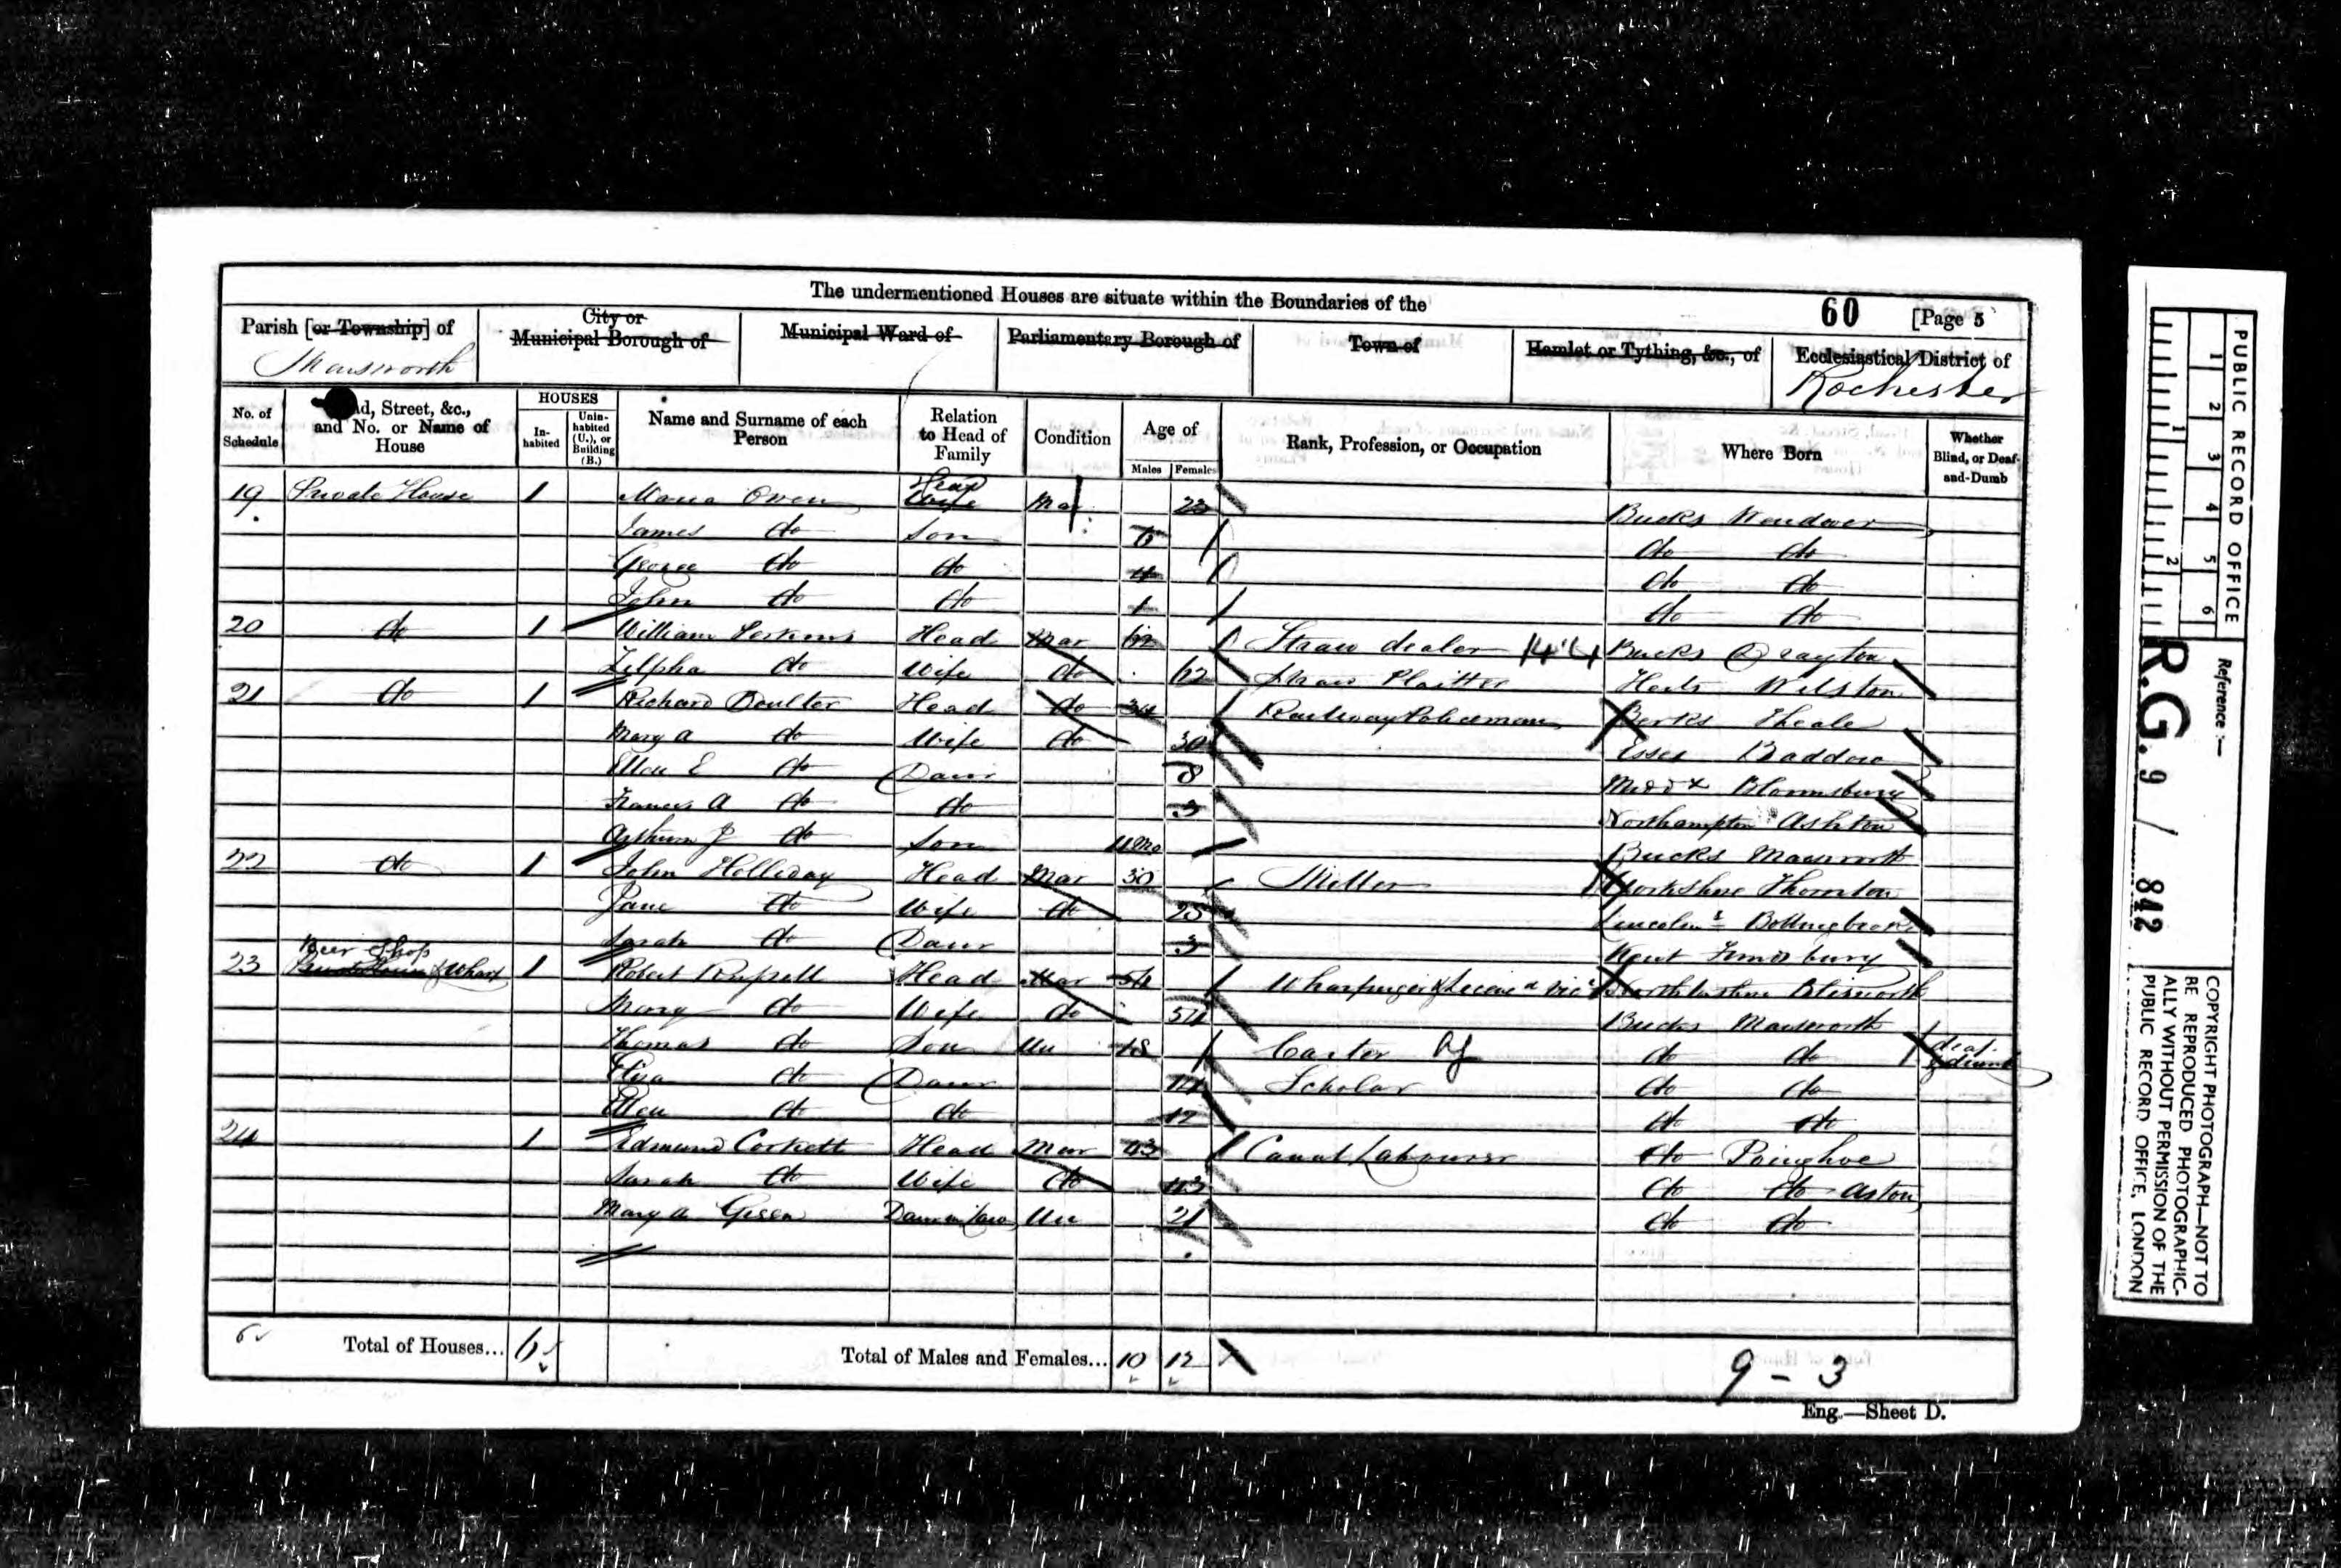 The undermentioned Houses are situate within the Boundaries of the
60 [Page 5
Parish [or Township] of City or Municipal Borough of Municipal Ward of Parliamentary Borough of Town of Hamlet or Tything, &c., of Ecclesiastical District of
Marsworth Rochester
No. of Schedule Road, Street, &c., and No. or Name of House HOUSES Inhabited Uninhabited (U.), or Building (B.) Name and Surname of each Person Relation to Head of Family Condition Age of Males Females Rank, Profession, or Occupation Where Born Whether Blind, or Deaf-and-Dumb
19 Private House 1 Maria Owen Head Wife Mar 23 Bucks Wendover
James do Son 6 do do
George do do 4 do do
John do do 1 do do
20 do 1 William Perkins Head Mar 62 Straw dealer 144 Bucks Drayton
Zilpha do Wife do 62 Straw Plaitter Herts Wilston
21 do 1 Richard Coulter Head do 34 Railway Policeman Berks Theale
Mary A do Wife do 30 Essex Baddow
Ellen E do Daur 8 Middx Bloomsbury
Frances A do do 3 Northampton Ashton
Arthur J do Son 11 Mo Bucks Marsworth
22 do 1 John Holliday Head Mar 30 Miller Yorkshire Thornton
Jane do Wife do 25 Lincolns Bollingbroke
Sarah do Daur 3 Kent Frindsbury
23 Beer Shop & Wharf 1 Robert Russell Head Mar 54 Wharfinger & Licend Vict Northamshire Blisworth
Mary do Wife do 54 Bucks Marsworth
Thomas do Son Un 18 Carter do do deaf & dumb
Eliza do Daur 14 Scholar do do
Ellen do do 12 do do
24 1 Edmund Corkett Head Mar 43 Canal Labourer do Pinghoe
Sarah do Wife do 43 do do Aston
Mary A Green Daur in law Un 21 do do
6 Total of Houses... 6 Total of Males and Females... 10 12
9 - 3
Eng.—Sheet D.
PUBLIC RECORD OFFICE
1 2 3 4 5 6
1 2
Reference :—
R.G. 9 / 842
COPYRIGHT PHOTOGRAPH—NOT TO
BE REPRODUCED PHOTOGRAPHIC-
ALLY WITHOUT PERMISSION OF THE
PUBLIC RECORD OFFICE, LONDON